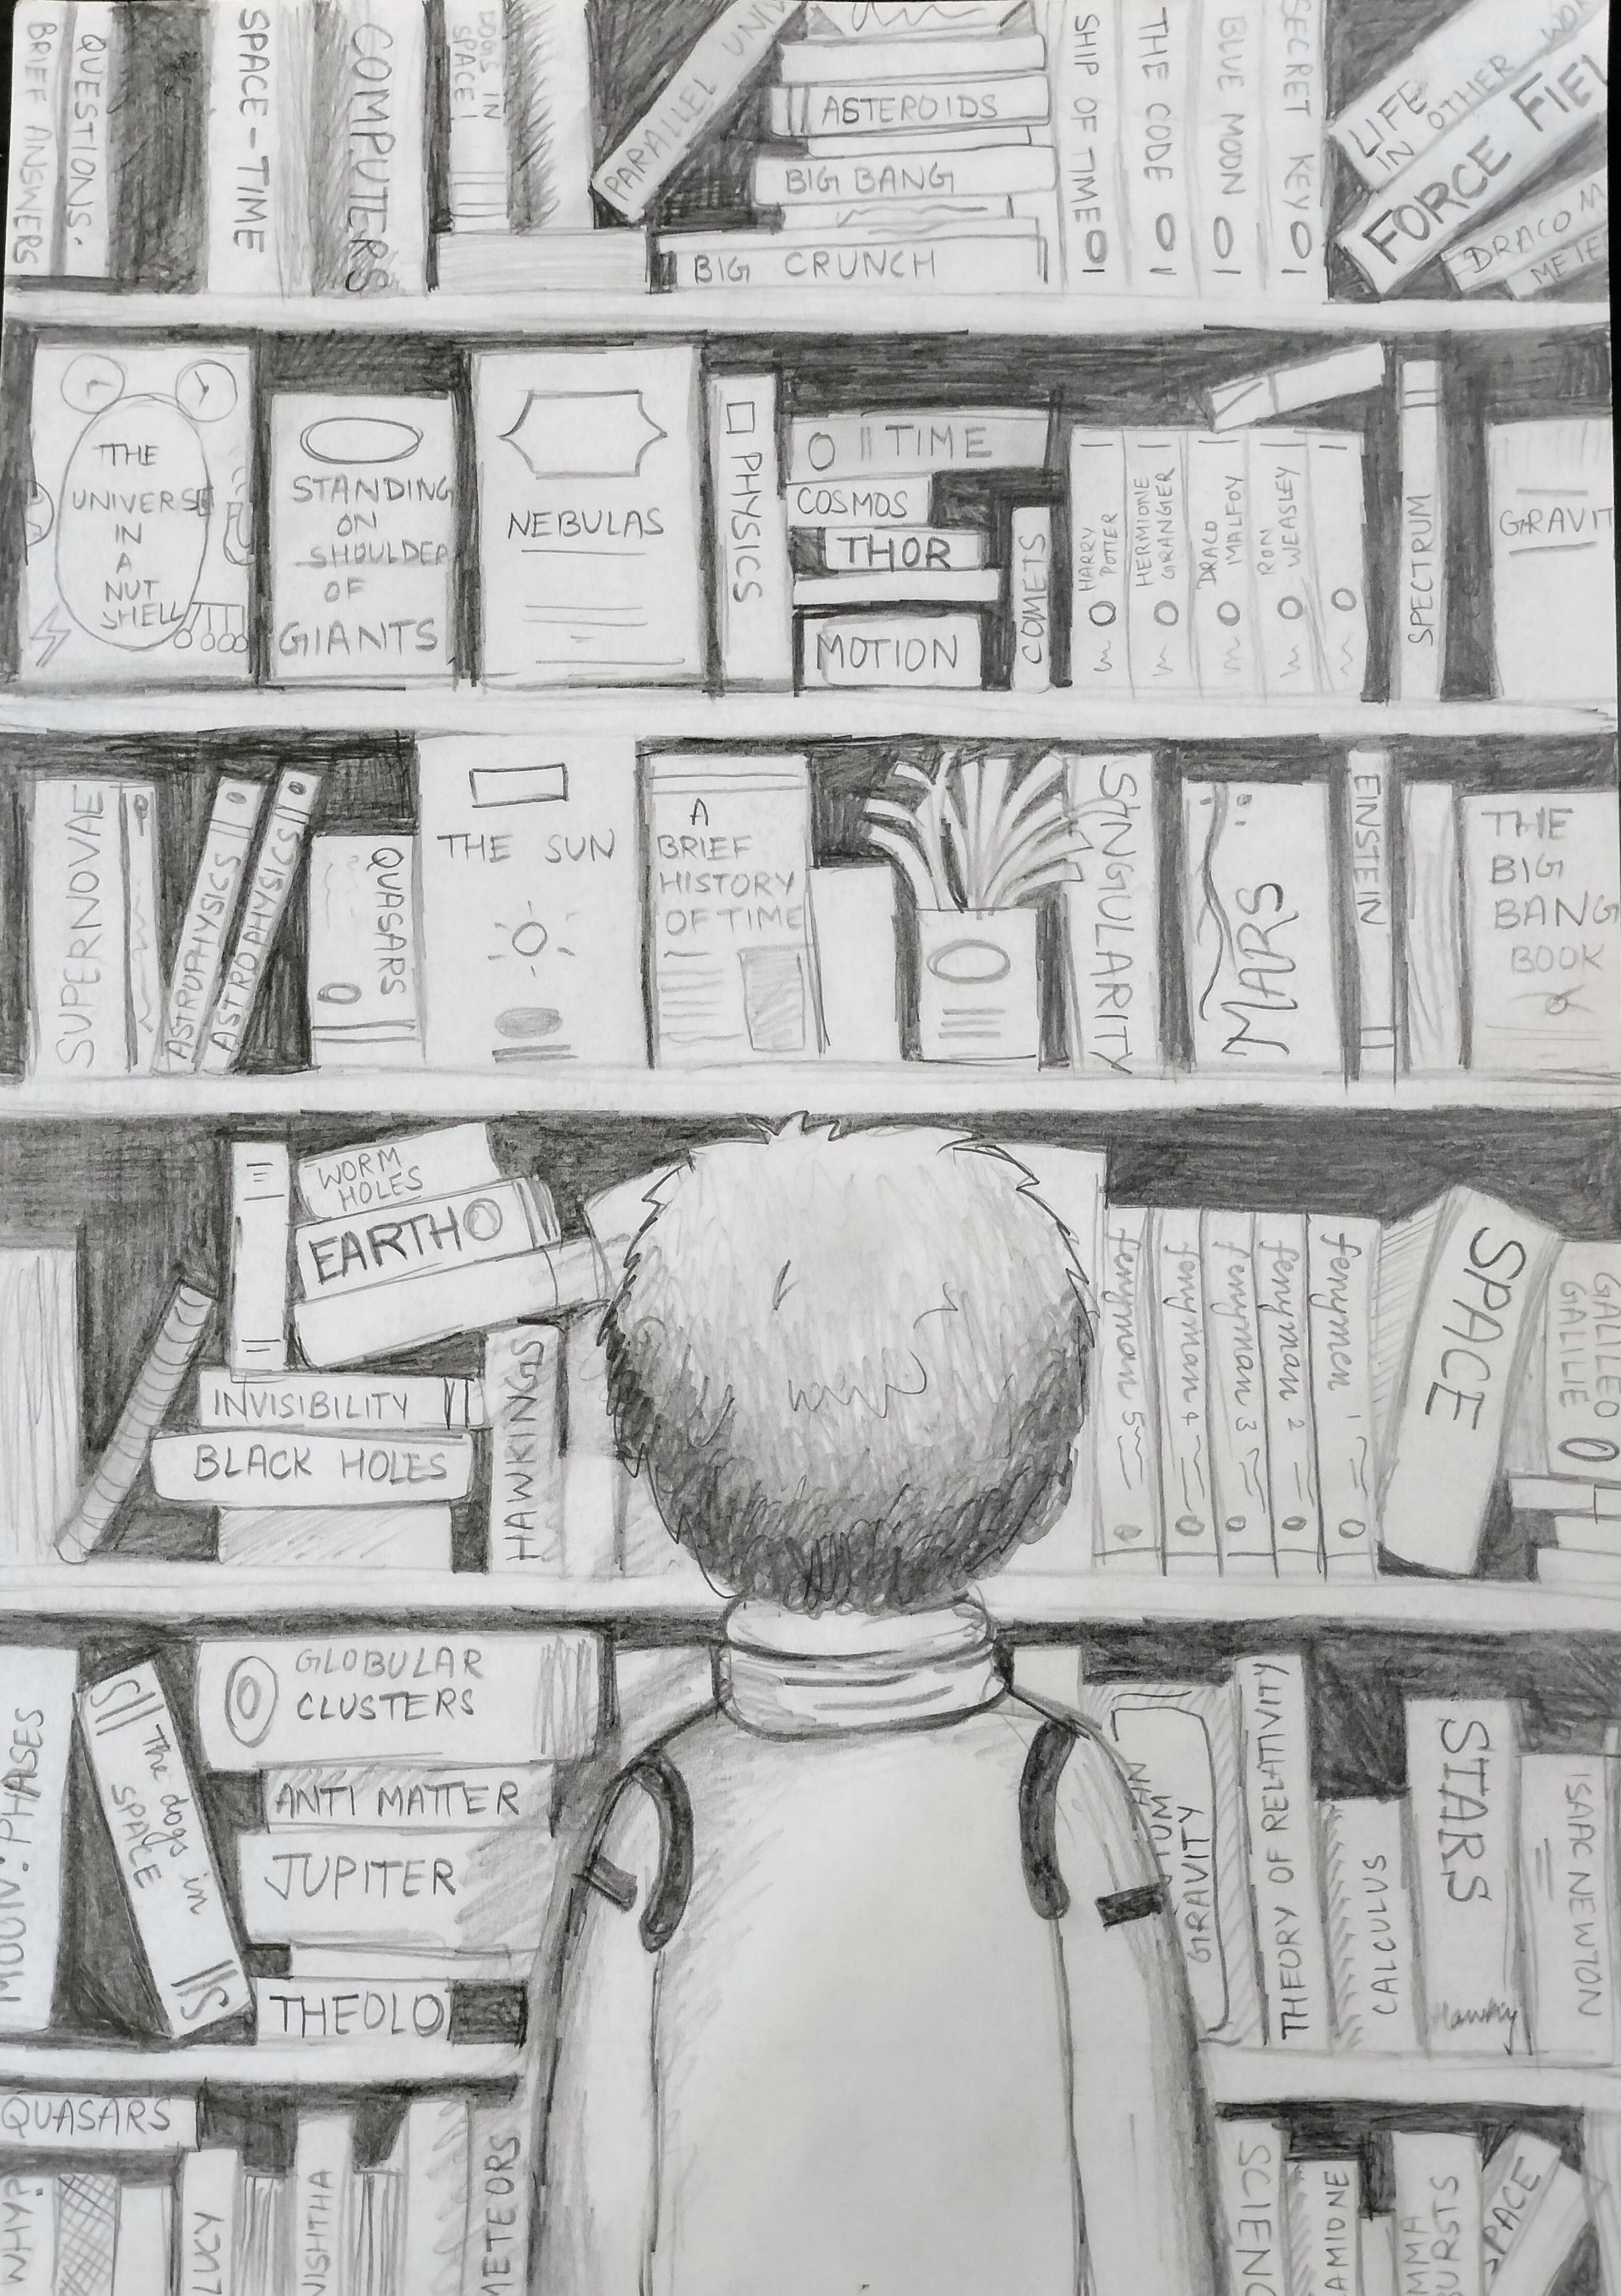 BRIEF ANSWERS
QUESTIONS.
SPACE-TIME
COMPUTERS
DOGS IN
SPACE!
PARALLEL UNIV
ASTEROIDS
BIG BANG
BIG CRUNCH
SHIP OF TIME
THE CODE
BLUE MOON
SECRET KEY
LIFE
IN OTHER WOR
FORCE FIEL
DRACO M
METE
THE
UNIVERSE
IN
A
NUT
SHELL
STANDING
ON
SHOULDER
OF
GIANTS
NEBULAS
PHYSICS
TIME
COSMOS
THOR
MOTION
COMETS
HARRY
POTTER
HERMIONE
GRANGER
DRACO
MALFOY
RON
WEASLEY
SPECTRUM
GRAVIT
SUPERNOVAE
ASTROPHYSICS
ASTROPHYSICS
QUASARS
THE SUN
A
BRIEF
HISTORY
OF TIME
SINGULARITY
MARS
EINSTEIN
THE
BIG
BANG
BOOK
WORM
HOLES
EARTH
INVISIBILITY
BLACK HOLES
HAWKINGS
fenyman 5
fenyman 4
fenyman 3
fenyman 2
fenymen 1
SPACE
GALILEO
GALILIE
MOON: PHASES
The dogs in
SPACE
GLOBULAR
CLUSTERS
ANTI MATTER
JUPITER
THEOLO
NTUM
GRAVITY
THEORY OF RELATIVITY
CALCULUS
STARS
Hawking
ISAAC NEWTON
QUASARS
WHY?
LUCY
VISHTHA
METEORS
SCIENC
AMIONE
MMA
URSTS
SPACE